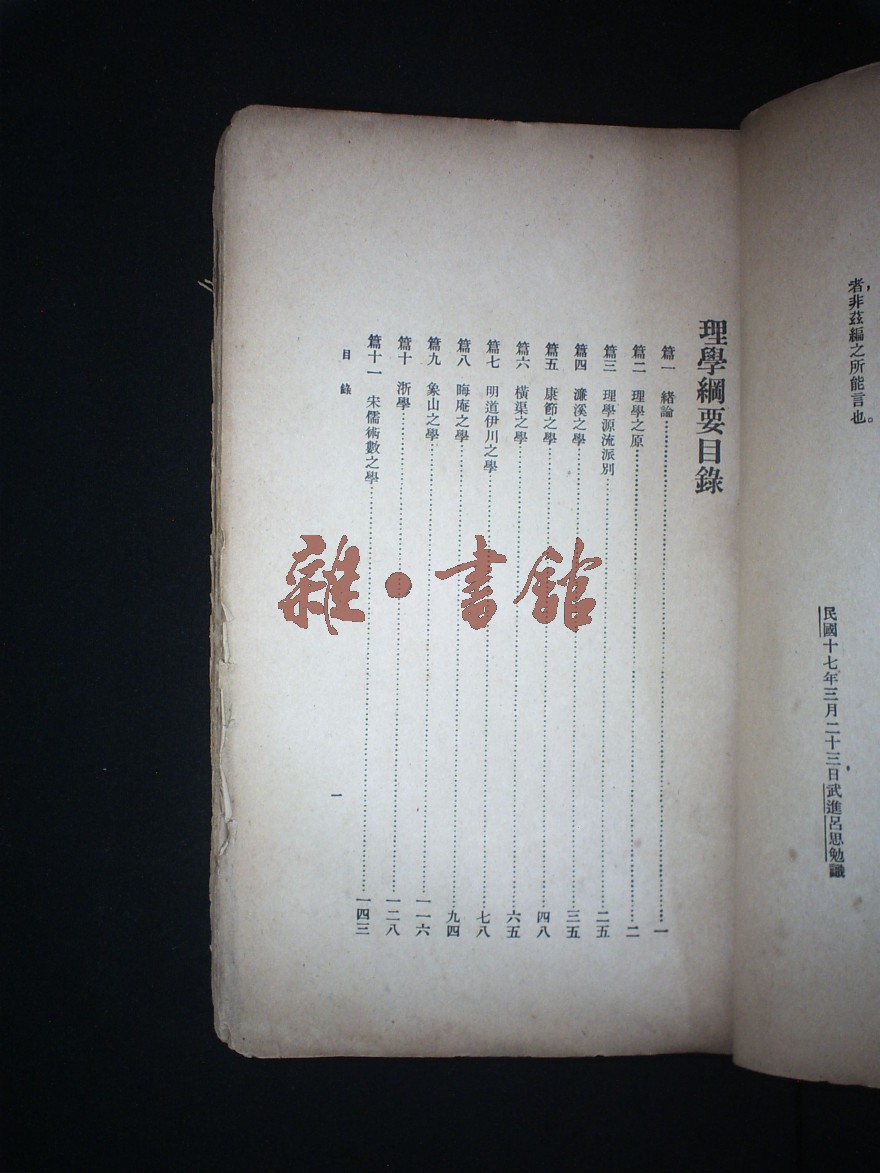 者，非茲編之所能言也。
民國十七年三月二十三日武進呂思勉識
理學綱要目錄
篇一　緒論……一
篇二　理學之原……二
篇三　理學源流派別……二五
篇四　濂溪之學……三五
篇五　康節之學……四八
篇六　橫渠之學……六五
篇七　明道伊川之學……七八
篇八　晦庵之學……九四
篇九　象山之學……一一六
篇十　浙學……一二八
篇十一　宋儒術數之學……一四三
目錄　一
雜·書館